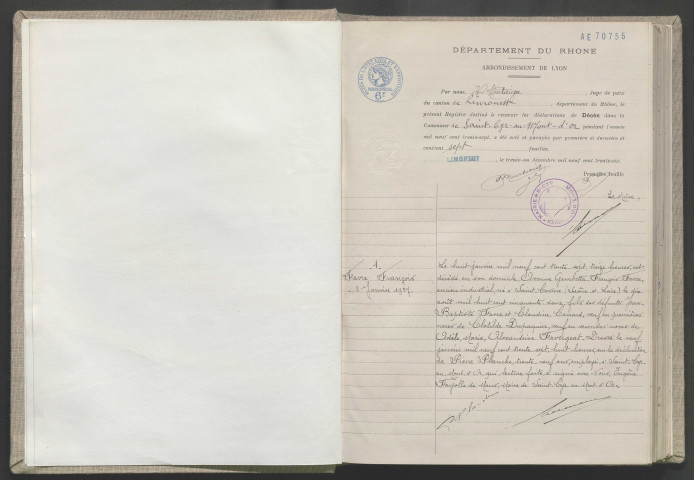 AE 70755
DÉPARTEMENT DU RHONE
ARRONDISSEMENT DE LYON
Par nous, juge de paix
du canton de Limonest, département du Rhône, le
présent Registre destiné à recevoir les déclarations de Décès dans la
Commune de Saint-Cyr-au-Mont-d'Or pendant l'année
mil neuf cent trente-sept, a été coté et paraphé par première et dernière et
contient sept feuilles.
LIMONEST, le trente-un décembre mil neuf cent trente-six.
Première feuille
Le Maire,
1.
Favre François
8 Janvier 1937
Le huit janvier mil neuf cent trente sept, heures, est
décédé en son domicile Avenue Gambetta François Favre,
ancien industriel, né à Saint (Saône et Loire) le dix
août mil huit cent cinquante deux, fils des défunts Jean
Baptiste Favre et Claudine, veuf en premières
noces de Clotilde, veuf en secondes noces de
Adèle, Maria, Alexandrine Favergeat. Dressé le neuf
janvier mil neuf cent trente sept, huit heures, sur la déclaration
de Pierre Planche, trente neuf ans, employé, à Saint-Cyr
au Mont d'Or qui, lecture faite a signé avec Nous, Eugène
Maire de Saint-Cyr au Mont d'Or.